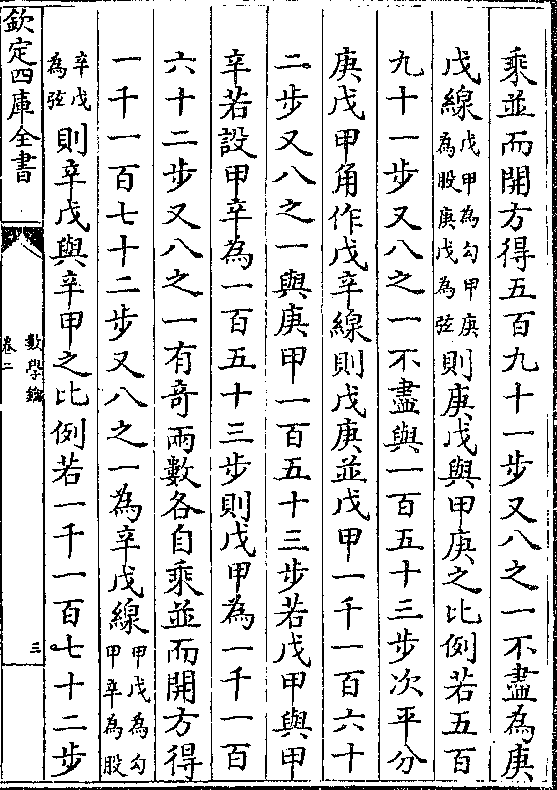 乘並而開方得五百九十一步又八之一不盡為庚
戊線戊甲為勾甲庚為股庚戊為弦則庚戊與甲庚之比例若五百
九十一步又八之一不盡與一百五十三步次平分
庚戊甲角作戊辛線則戊庚並戊甲一千一百六十
二步又八之一與庚甲一百五十三步若戊甲與甲
辛若設甲辛為一百五十三步則戊甲為一千一百
六十二步又八之一有奇兩數各自乘並而開方得
一千一百七十二步又八之一為辛戊線甲戊為勾甲辛為股
辛戊為弦則辛戊與辛甲之比例若一千一百七十二步
欽定四庫全書
數學鑰
卷二
三